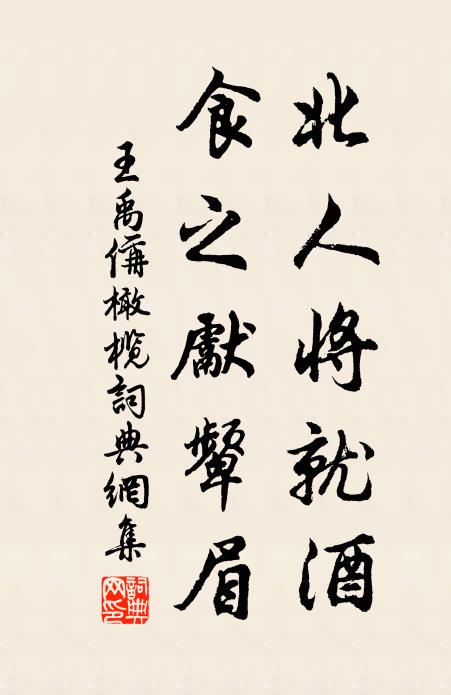 北人將就酒
食之獻顰眉
王禹偁橄欖詞典網集
詞典
网印